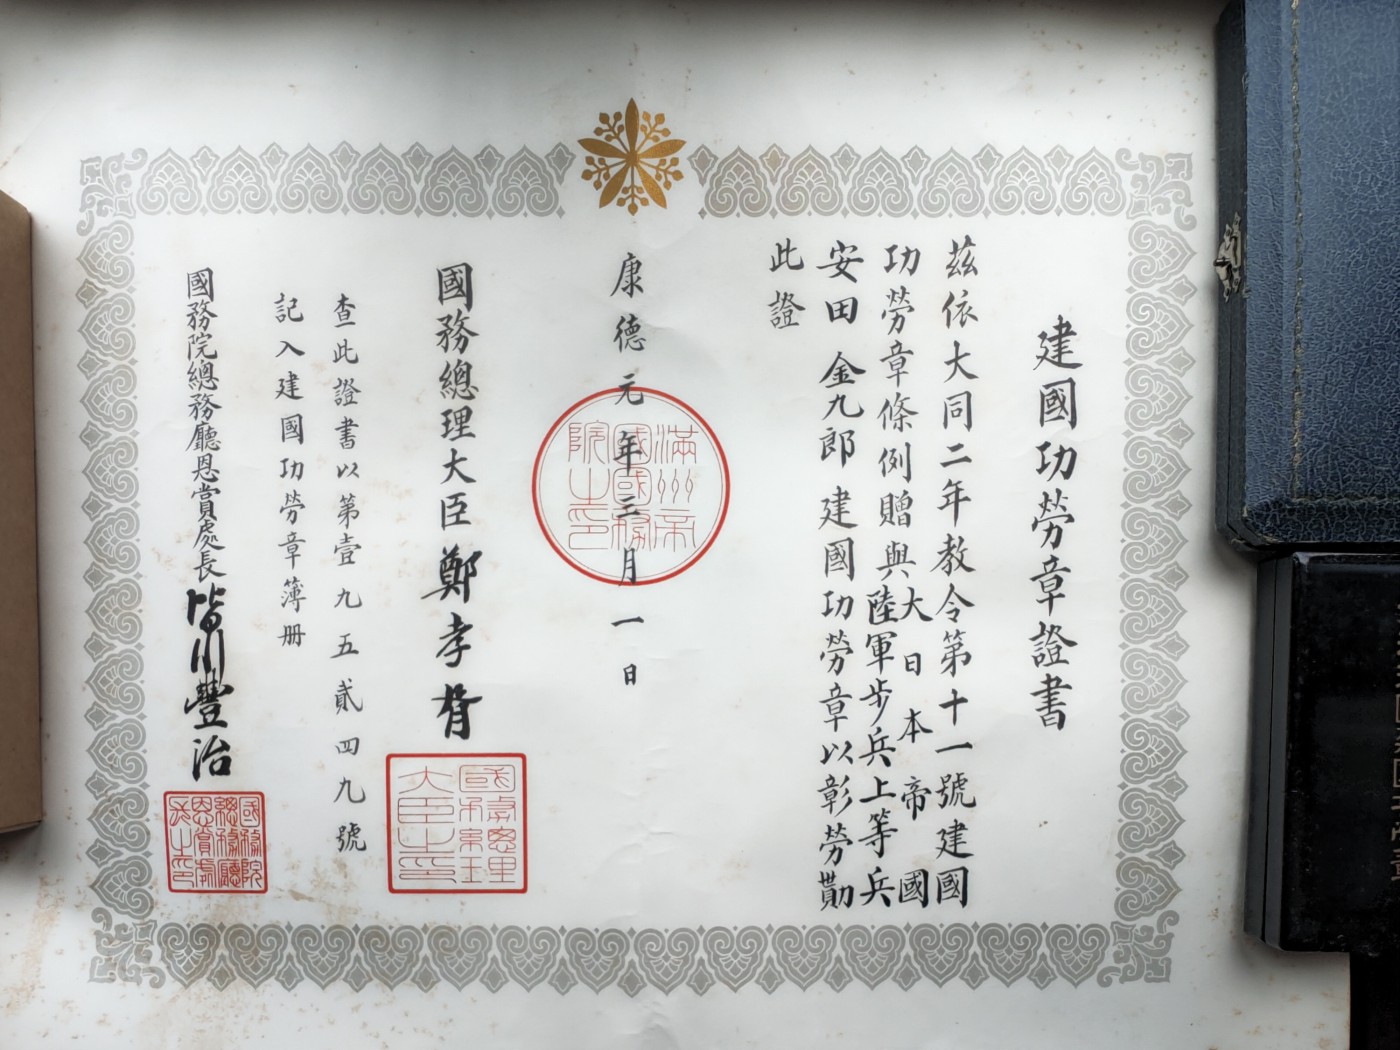 建國功勞章證書
茲依大同二年教令第十一號建國
功勞章條例贈與大日本帝國
陸軍步兵上等兵
安田 金九郎 建國功勞章以彰勞勩
此證
康德元年三月一日
滿州帝
國國務
院之印
國務總理大臣 鄭孝胥
國務總理
大臣之印
查此證書以第壹九五貳四九號
記入建國功勞章簿册
國務院總務廳恩賞處長 皆川豐治
國務院
總務廳
恩賞處
長之印